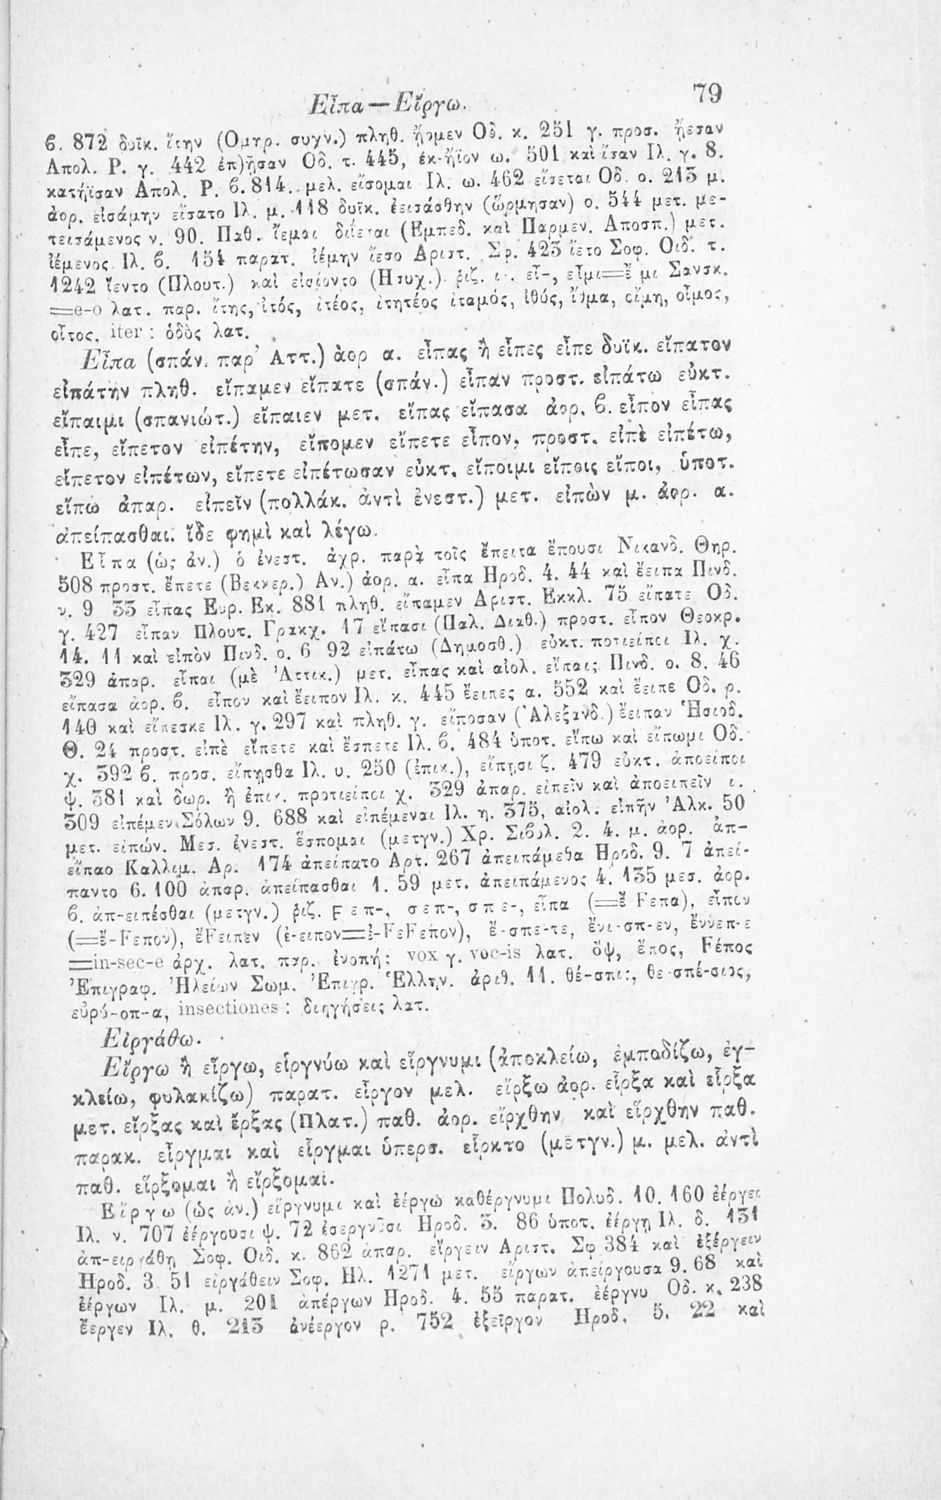 Εἶπα — Εἴργω. 79
6. 872 δυϊκ. ἴτην (Ομηρ. συγν.) πληθ. ᾔομεν Οδ. κ. 251 γ. προσ. ᾔεσαν
Απολ. Ρ. γ. 442 ἐπ)ῇσαν Οδ. τ. 445, ἐκ-ήϊον ω. 501 καὶ ἴσαν Ιλ. γ. 8.
κατήϊσαν Απολ. Ρ. 6. 814. μελ. εἴσομαι Ιλ. ω. 462 εἴσεται Οδ. ο. 213 μ.
ἀορ. εἰσάμην εἴσατο Ιλ. μ. 118 δυϊκ. ἐεισάσθην (ὥρμησαν) ο. 544 μετ. με-
τεισάμενος ν. 90. Παθ. ἴεμαι δίεται (Εμπεδ. καὶ Παρμεν. Αποσπ.) μετ.
ἰέμενος Ιλ. 6. 154 παρατ. ἰέμην ἴεσο Αριστ. Σφ. 423 ἵετο Σοφ. Οιδ. τ.
1242 ἵεντο (Πλουτ.) καὶ (Ησυχ.) ῥιζ. ι-. εἶ-, εἶμι=ἔ μι Σανσκ.
=e-o λατ. παρ. ἴτης, ἰτός, ἰτέος, ἰτητέος ἰταμός, ἰθύς, ἴθμα, οἴμη, οἶμος,
οἶτος, iter : ὁδὸς λατ.
Εἶπα (σπάν. παρ' Αττ.) ἀορ α. εἶπας ἢ εἶπες εἶπε δυϊκ. εἴπατον
εἰπάτην πληθ. εἴπαμεν εἴπατε (σπάν.) εἶπαν προστ. εἰπάτω εὐκτ.
εἴπαιμι (σπανιώτ.) εἴπαιεν μετ. εἴπας εἴπασα ἀορ. 6. εἶπον εἶπας
εἶπε, εἴπετον εἰπέτην, εἴπομεν εἴπετε εἶπον, προστ. εἰπὲ εἰπέτω,
εἴπετον εἰπέτων, εἴπετε εἰπέτωσαν εὐκτ. εἴποιμι εἴποις εἴποι, ὑποτ.
εἴπω ἀπαρ. εἰπεῖν (πολλάκ. ἀντὶ ἐνεστ.) μετ. εἰπὼν μ. ἀορ. α.
ἀπείπασθαι. ἴδε φημὶ καὶ λέγω.
Εἶπα (ὡς ἀν.) ὁ ἐνεστ. ἀχρ. παρὰ τοῖς ἔπειτα ἔπουσι Νικανδ. Θηρ.
508 προστ. ἔπετε (Βεκκερ.) Αν.) ἀορ. α. εἶπα Ηροδ. 4. 44 καὶ ἔειπα Πινδ.
ν. 9 33 εἶπας Ευρ. Εκ. 881 πληθ. εἴπαμεν Αριστ. Εκκλ. 75 εἴπατε Οδ.
γ. 427 εἶπαν Πλουτ. Γρακχ. 17 εἴπασι (Παλ. Διαθ.) προστ. εἶπον Θεοκρ.
14. 11 καὶ εἰπὸν Πινδ. ο. 6 92 εἰπάτω (Δημοσθ.) εὐκτ. ποτιείποι Ιλ. χ.
329 ἀπαρ. εἶπαι (μὲ Ἀττικ.) μετ. εἶπας καὶ αἰολ. εἴπαις Πινδ. ο. 8. 46
εἴπασα ἀορ. 6. εἶπον καὶ ἔειπον Ιλ. κ. 445 ἔειπες α. 552 καὶ ἔειπε Οδ. ρ.
140 καὶ εἴπεσκε Ιλ. γ. 297 καὶ πληθ. γ. εἴποσαν (Ἀλεξανδ.) ἔειπαν Ἡσιοδ.
Θ. 24 προστ. εἰπὲ εἴπετε καὶ ἔσπετε Ιλ. 6. 484 ὑποτ. εἴπω καὶ εἴπωμι Οδ.
χ. 392 6. προσ. εἴπῃσθα Ιλ. υ. 250 (ἐπικ.), εἴπῃσι ζ. 479 εὐκτ. ἀποείποι
ψ. 381 καὶ δωρ. ἢ ἐπικ. προτιείποι χ. 329 ἀπαρ. εἰπεῖν καὶ ἀποειπεῖν ι.
309 εἰπέμεν Σόλων 9. 688 καὶ εἰπέμεναι Ιλ. η. 375, αἰολ. εἰπῆν Ἀλκ. 50
μετ. εἰπών. Μεσ. ἐνεστ. ἕσπομαι (μετγν.) Χρ. Σιβυλ. 2. 4. μ. ἀορ. ἀπ-
είπαο Καλλιμ. Αρ. 174 ἀπείπατο Αρτ. 267 ἀπειπάμεθα Ηροδ. 9. 7 ἀπεί-
παντο 6. 100 ἀπαρ. ἀπείπασθαι 1. 59 μετ. ἀπειπάμενος 4. 135 μεσ. ἀορ.
6. ἀπ-ειπέσθαι (μετγν.) ῥιζ. Fεπ-, σεπ-, σπε-, εἶπα (=ἔ Fεπα), εἶπον
(=ἔ-Fεπον), ἔFειπεν (ἐ-ειπον=ἐ-FεFεπον), ἔ-σπε-τε, ἔνι-σπ-εν, ἔννεπ-ε
=in-sec-e ἀρχ. λατ. παρ. ἐνοπή; vox γ. voc-is λατ. ὄψ, ἔπος, Fέπος
Ἐπιγραφ. Ἠλείων Σωμ. Ἐπιγρ. Ἑλλην. ἀριθ. 11. θέ-σπις, θε-σπέ-σιος,
εὐρύ-οπ-α, insectiones : διηγήσεις λατ.
Εἰργάθω.
Εἴργω ἢ εἵργω, εἱργνύω καὶ εἵργνυμι (ἀποκλείω, ἐμποδίζω, ἐγ-
κλείω, φυλακίζω) παρατ. εἶργον μελ. εἴρξω ἀορ. εἶρξα καὶ εἷρξα
μετ. εἴρξας καὶ ἔρξας (Πλατ.) παθ. ἀορ. εἴρχθην καὶ εἵρχθην παθ.
παρακ. εἶργμαι καὶ εἷργμαι ὑπερσ. εἶρκτο (μετγν.) μ. μελ. ἀντὶ
παθ. εἴρξομαι ἢ εἵρξομαι.
Εἴργω (ὡς ἀν.) εἵργνυμι καὶ ἐέργω καθέργνυμι Πολυδ. 10. 160 ἐέργει
Ιλ. ν. 707 ἐέργουσι ψ. 72 ἐσεργνῦσι Ηροδ. 3. 86 ὑποτ. ἐέργῃ Ιλ. δ. 131
ἀπ-ειργάθῃ Σοφ. Οιδ. κ. 862 ἀπαρ. εἴργειν Αριστ. Σφ 384 καὶ ἐξέργειν
Ηροδ. 3 51 εἰργάθειν Σοφ. Ηλ. 1271 μετ. εἴργων ἀπείργουσα 9. 68 καὶ
ἐέργων Ιλ. μ. 201 ἀπέργων Ηροδ. 4. 55 παρατ. ἐέργνυ Οδ. κ. 238
ἔεργεν Ιλ. θ. 213 ἀνέεργον ρ. 752 ἐξεῖργον Ηροδ. 5. 22 καὶ